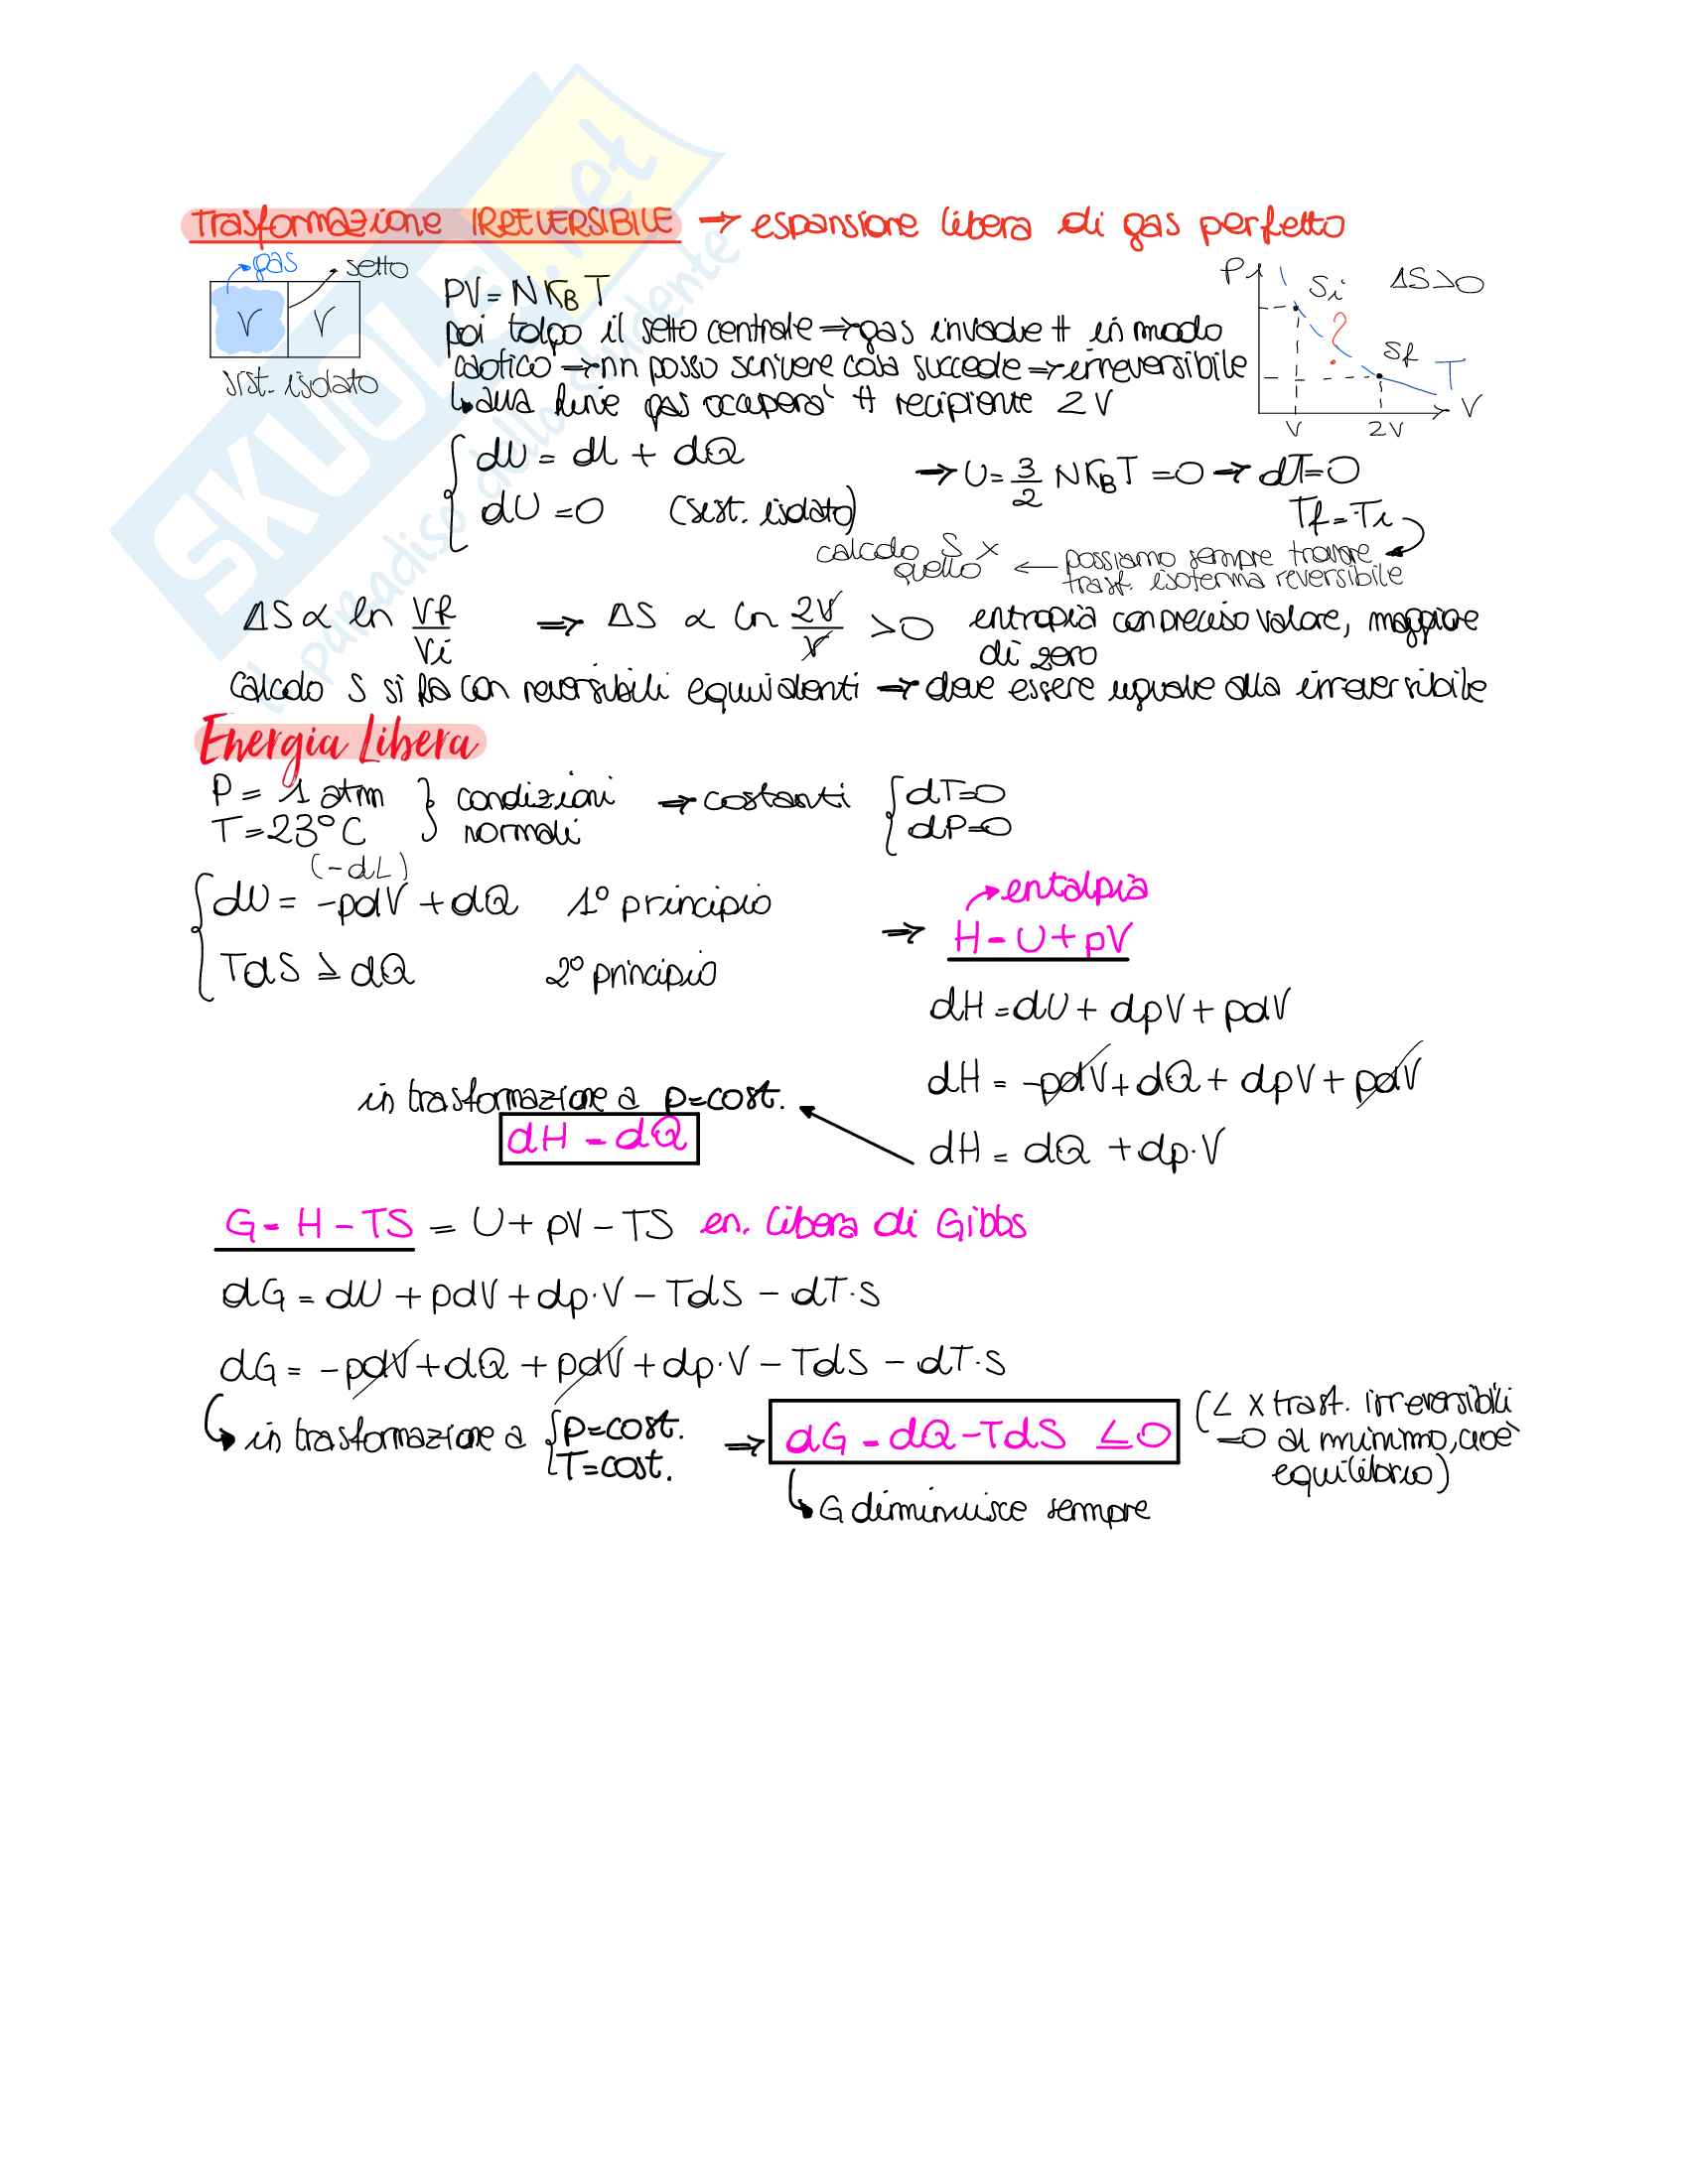 Trasformazione IRREVERSIBILE → espansione libera di gas perfetto
gas setto
V V
sist. isolato
PV = N KB T
poi tolgo il setto centrale → gas invade tt in modo
caotico → nn posso scrivere cosa succede → irreversibile
↳ alla fine gas occuperà tt recipiente 2V
P Si ΔS>0
?
Sf T
V 2V V
{ dU = dL + dQ
dU = 0 (sist. isolato)
→ U = 3/2 N KB T = 0 → dT=0
Tf = Ti
possiamo sempre trovare
trasf. isoterma reversibile
← calcolo S x
quello
ΔS ∝ ln Vf/Vi ⇒ ΔS ∝ ln 2V/V >0 entropia con preciso valore, maggiore
di zero
Calcolo S si fa con reversibili equivalenti → deve essere uguale alla irreversibile
Energia Libera
P = 1 atm } condizioni → costanti { dT=0
T = 23°C normali dP=0
(-dL)
{ dU = -pdV + dQ 1° principio
TdS ≥ dQ 2° principio
→ entalpia
⇒ H = U + pV
dH = dU + dpV + pdV
dH = -pdV + dQ + dpV + pdV
dH = dQ + dp·V
in trasformazione a p=cost.
dH = dQ
G = H - TS = U + pV - TS en. libera di Gibbs
dG = dU + pdV + dp·V - TdS - dT·S
dG = -pdV + dQ + pdV + dp·V - TdS - dT·S
↳ in trasformazione a { p=cost. ⇒ dG = dQ - TdS ≤ 0
T=cost.
(< x trasf. irreversibili
=0 al minimo, cioè
equilibrio)
↳ G diminuisce sempre
SKUOLA.net
il paradiso dello studente